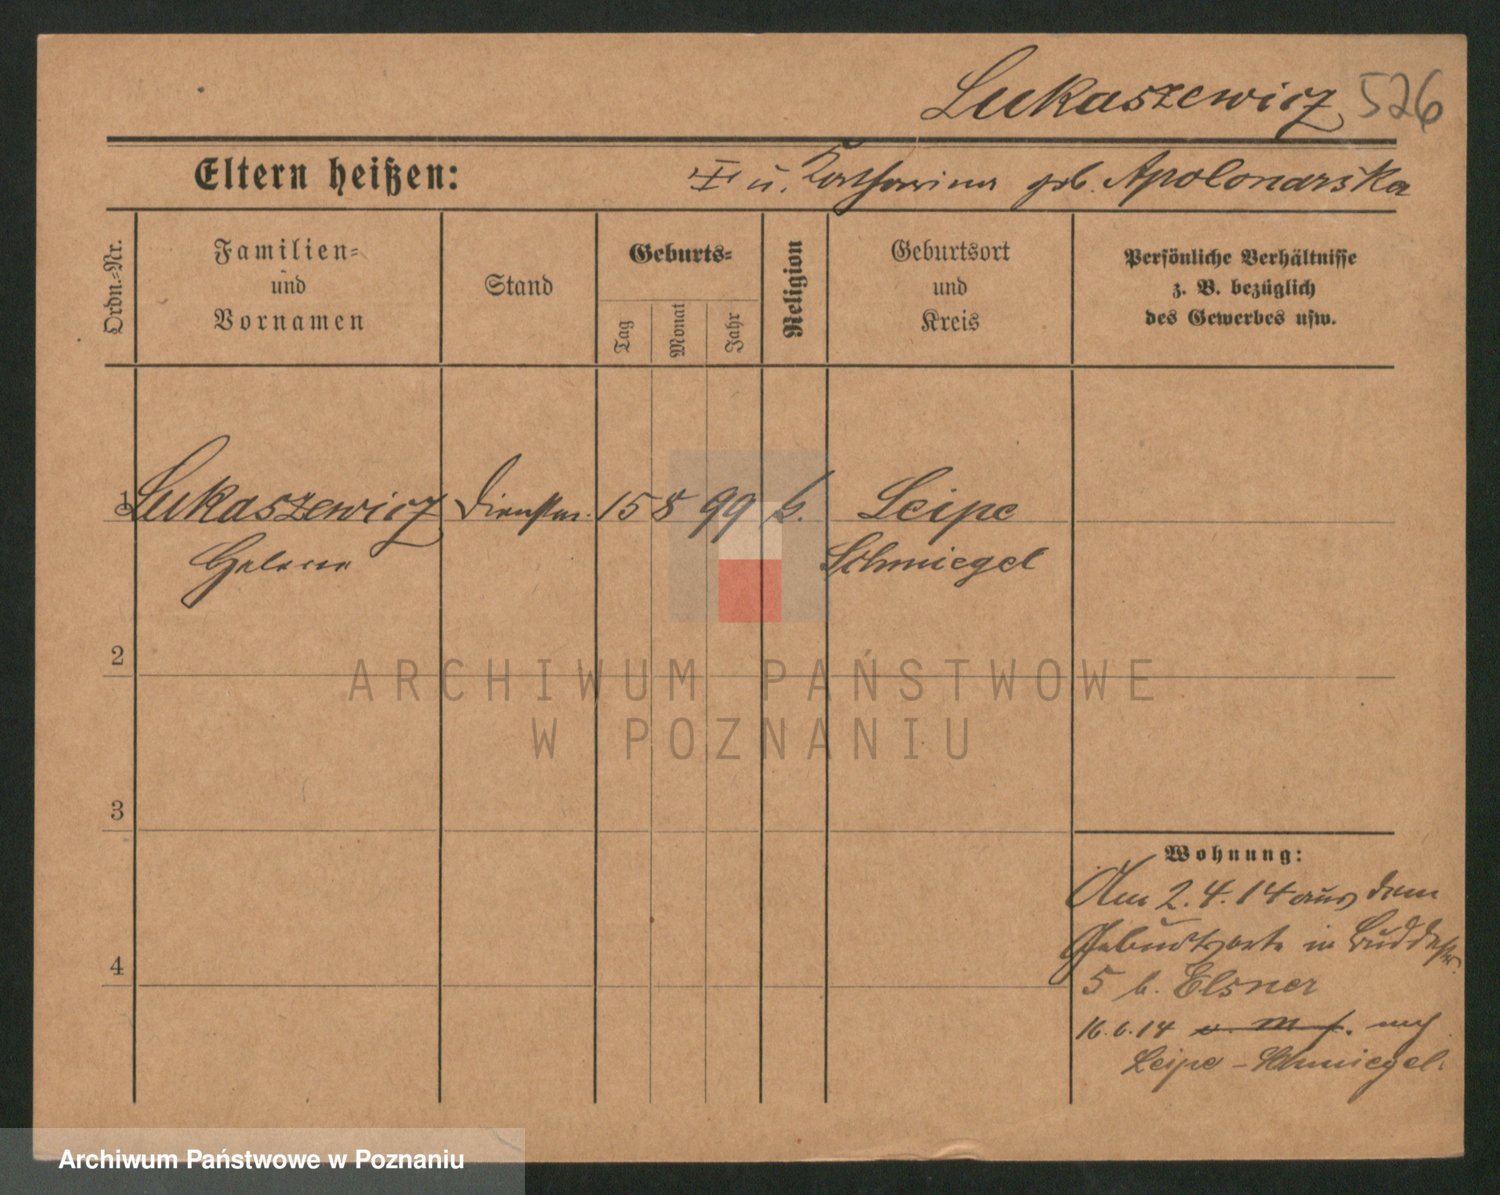 Lukaszewicz 526
Eltern heißen: u. Katharina geb. Apolonarska
Ordn.-Nr.
Familien-
und
Vornamen
Stand
Geburts-
Tag
Monat
Jahr
Religion
Geburtsort
und
Kreis
Persönliche Verhältnisse
z. B. bezüglich
des Gewerbes usw.
1 Lukaszewicz Dienstm. 15 8 99 k. Leipe
Helene Schmiegel
2
3
4
Wohnung:
Am 2.4.14 aus dem
Geburtsorte in Buddestr.
5 b. Elsner
16.6.14 nach
Leipe - Schmiegel.
ARCHIWUM PAŃSTWOWE
W POZNANIU
Archiwum Państwowe w Poznaniu